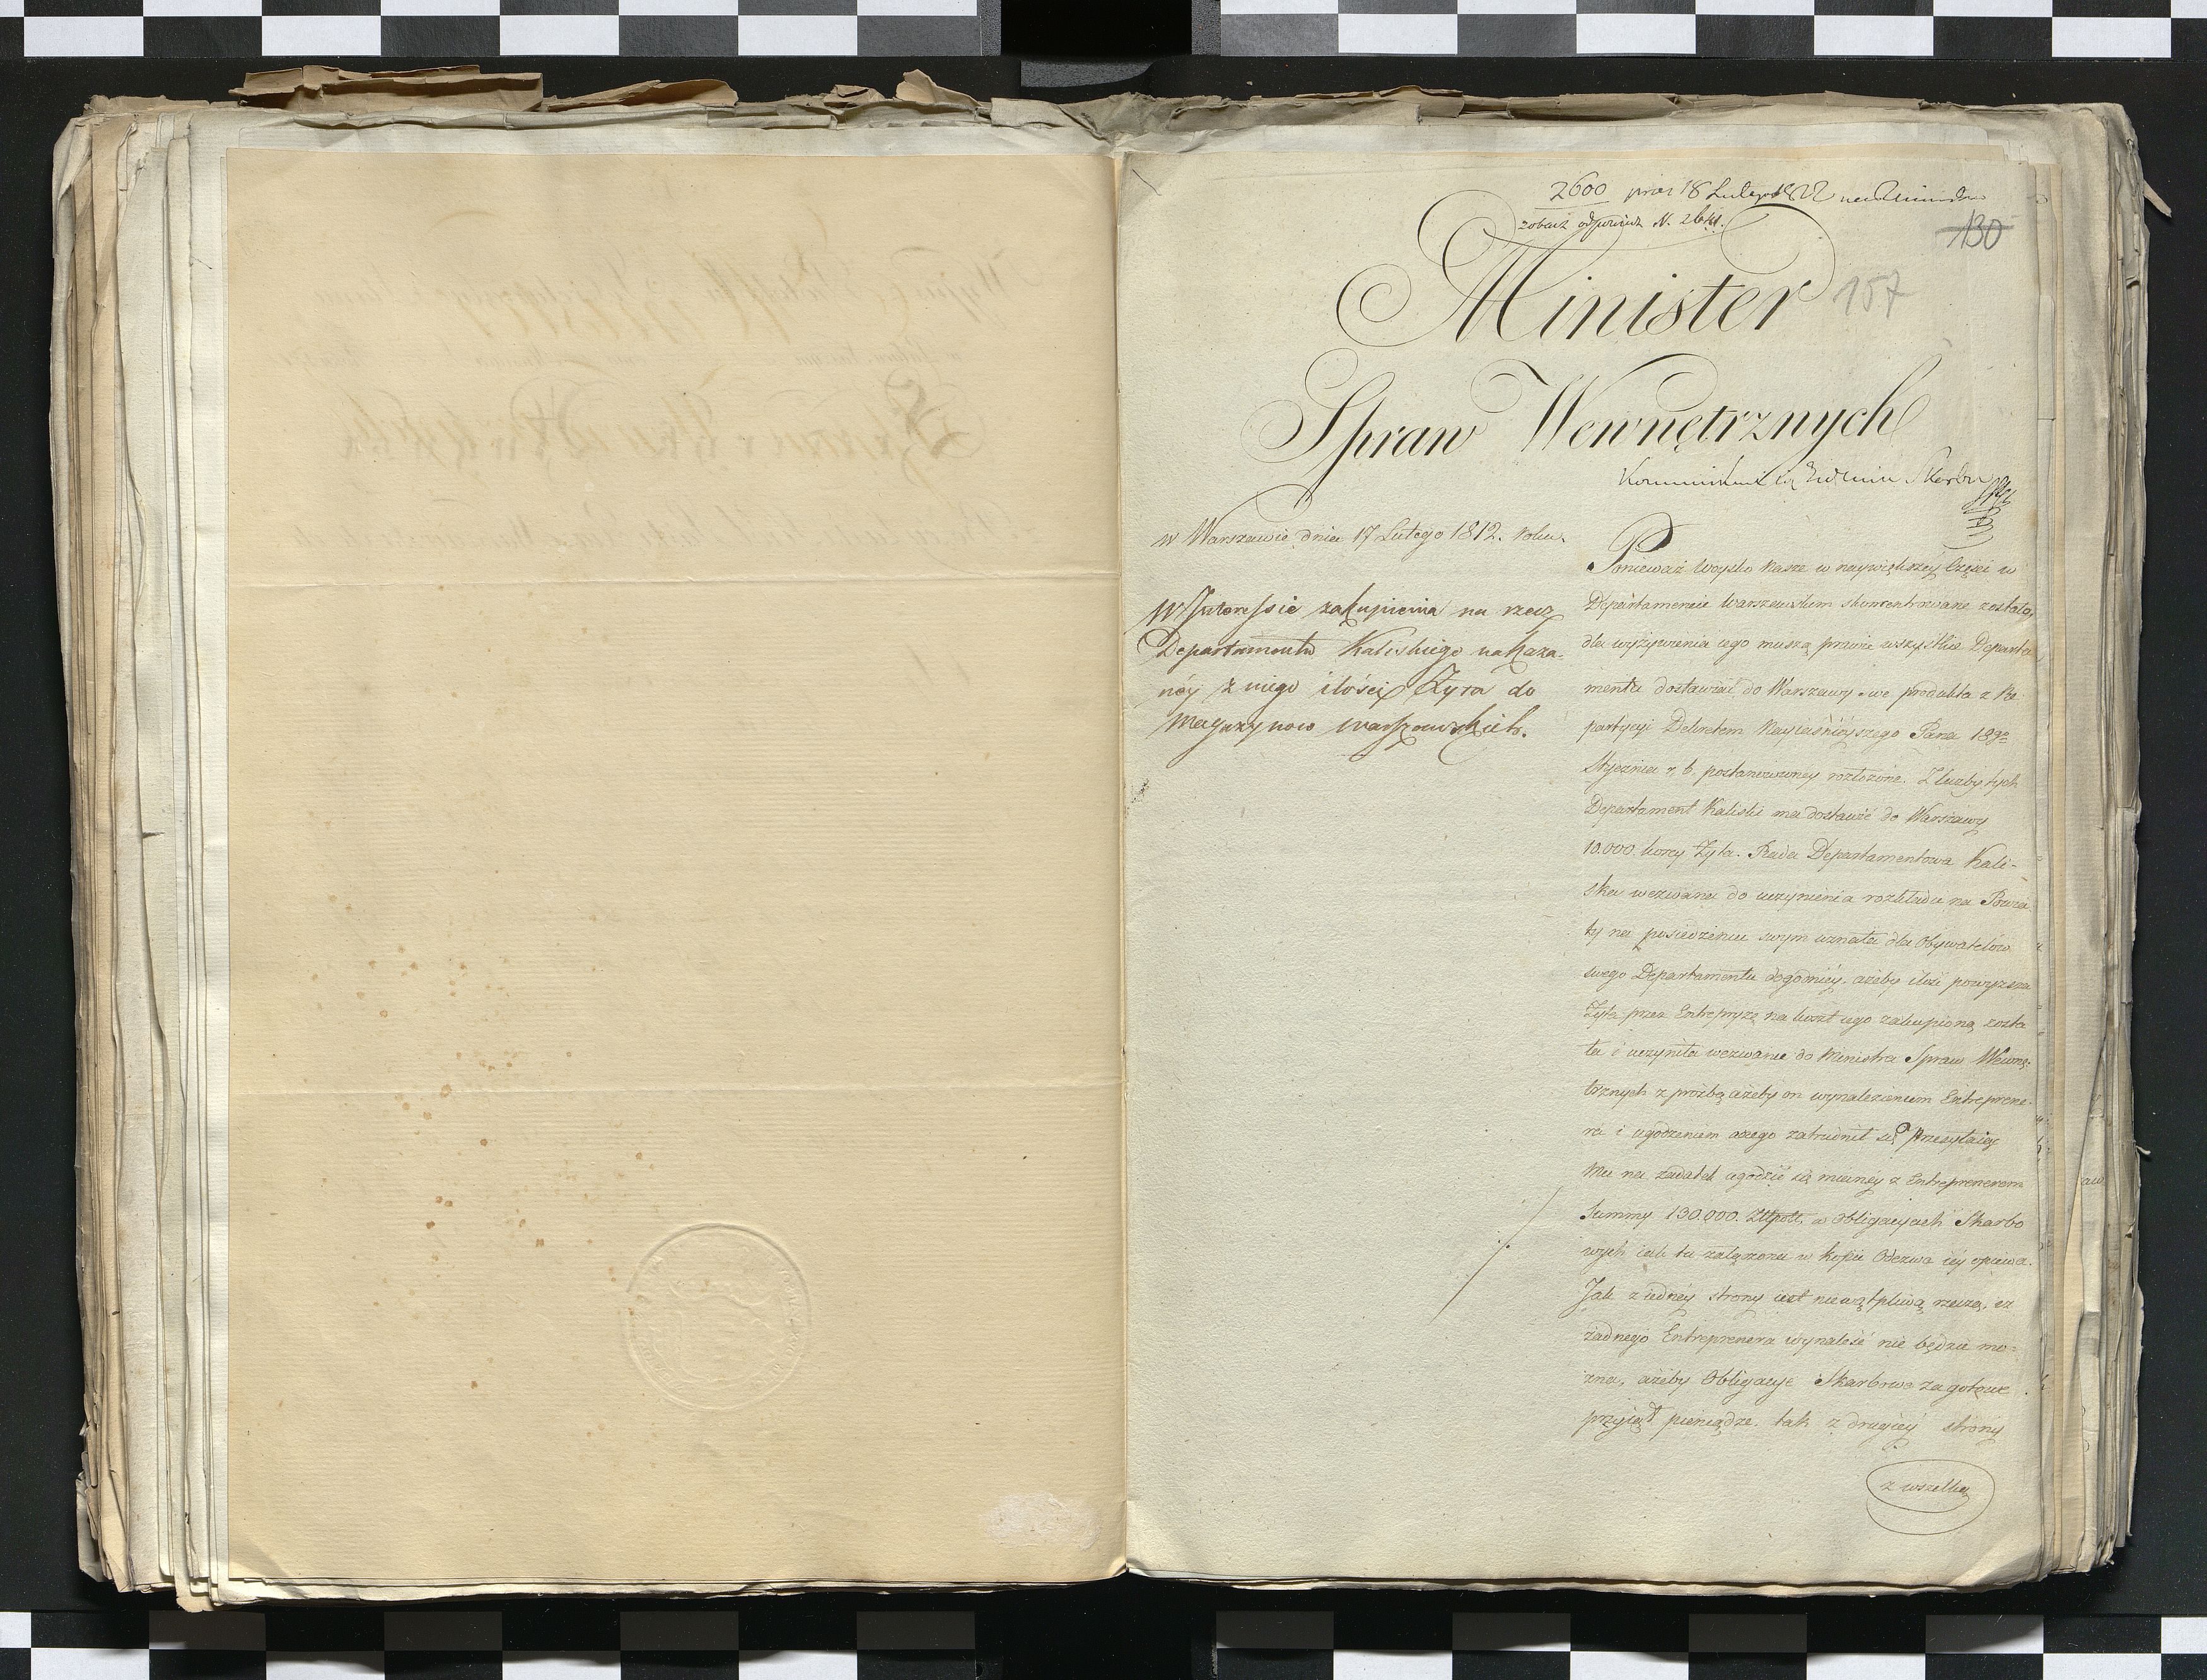 2600
zobacz odpowiedź N. 2641.
130
157
Minister
Spraw Wewnętrznych
w Warszawie dnia 17 Lutego 1812. Roku.
W Interessie zakupienia na rzecz
Departamentu Kaliskiego nakaza-
néy z niego ilości Żyta do
Magazynow Warszawskich.
Ponieważ Woysko Nasze w naywiększéy Części w
Departamencie Warszawskim skoncentrowane zostało,
dla wyżywienia iego muszą prawie wszystkie Departa
menta dostawiać do Warszawy swe produkta z Re
partycyi Dekretem Nayiaśnieyszego Pana 18go
Stycznia r. b. postanowioney rozłożone. Z liczby tych
Departament Kaliski ma dostawić do Warszawy
10.000 korcy Żyta. Rada Departamentowa Kali-
ska wezwana do uczynienia rozkładu na Powia
ty na posiedzeniu swym uznała dla Obywatelów
swego Departamentu dogodniéy, ażeby ilość powyższa
Żyta przez Entrepryzę na koszt iego zakupioną zosta
ła i uczyniła wezwanie do Ministra Spraw Wewnę-
trznych z prożbą ażeby on wynalezieniem Entreprene-
ra i ugodzeniem onego zatrudnił się przesyłaiąc
mu na zadatek ugodzić się maiącéy z Entreprenerem
Summy 130.000. Złłpolł. w Obligacyach Skarbo
wych iak tu załączona w kopii Odezwa iéy opiewa.
Jak z iednéy strony iest niewątpliwą rzeczą, że
żadnego Entreprenera wynaleść nie będzie mo-
żna, ażeby Obligacye Skarbowe za gotowe
przyiął pieniądze, tak z drugiéy strony
z wszelką